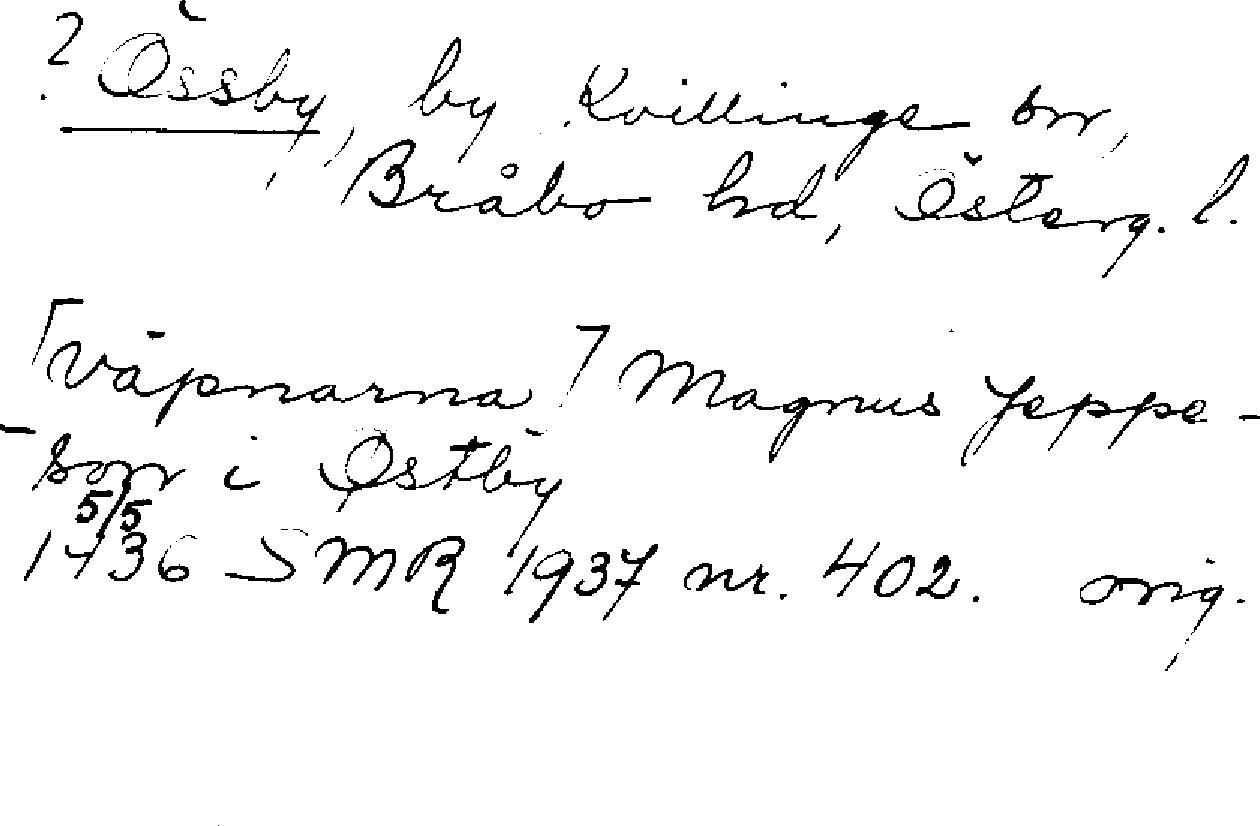 ? Össby, by Kvillinge sn,
Bråbo hd, Österg. l.
[väpnarna] Magnus Jeppe-
son i Østby
5/5
1436 SMR 1937 nr. 402. orig.